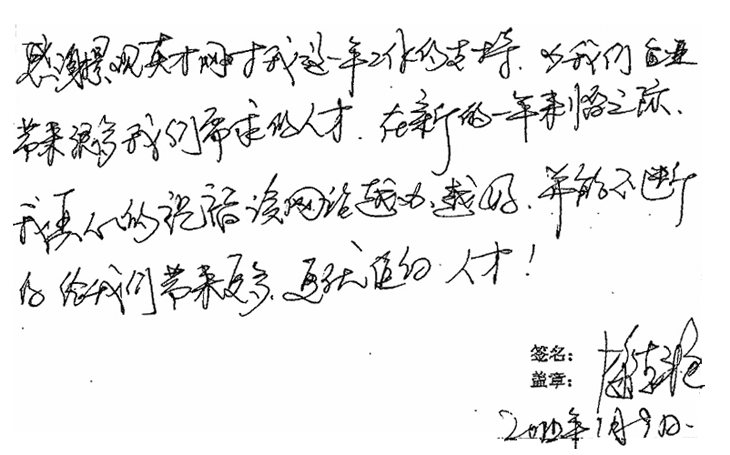 感谢景观英才网对我这一年工作的支持、为我们企业
带来很多我们需要的人才。在新的一年来临之际、
我真心的祝福该网站越办越好、并能不断
的给我们带来更多、更优秀的人才！
签名：
盖章：
年1月9日